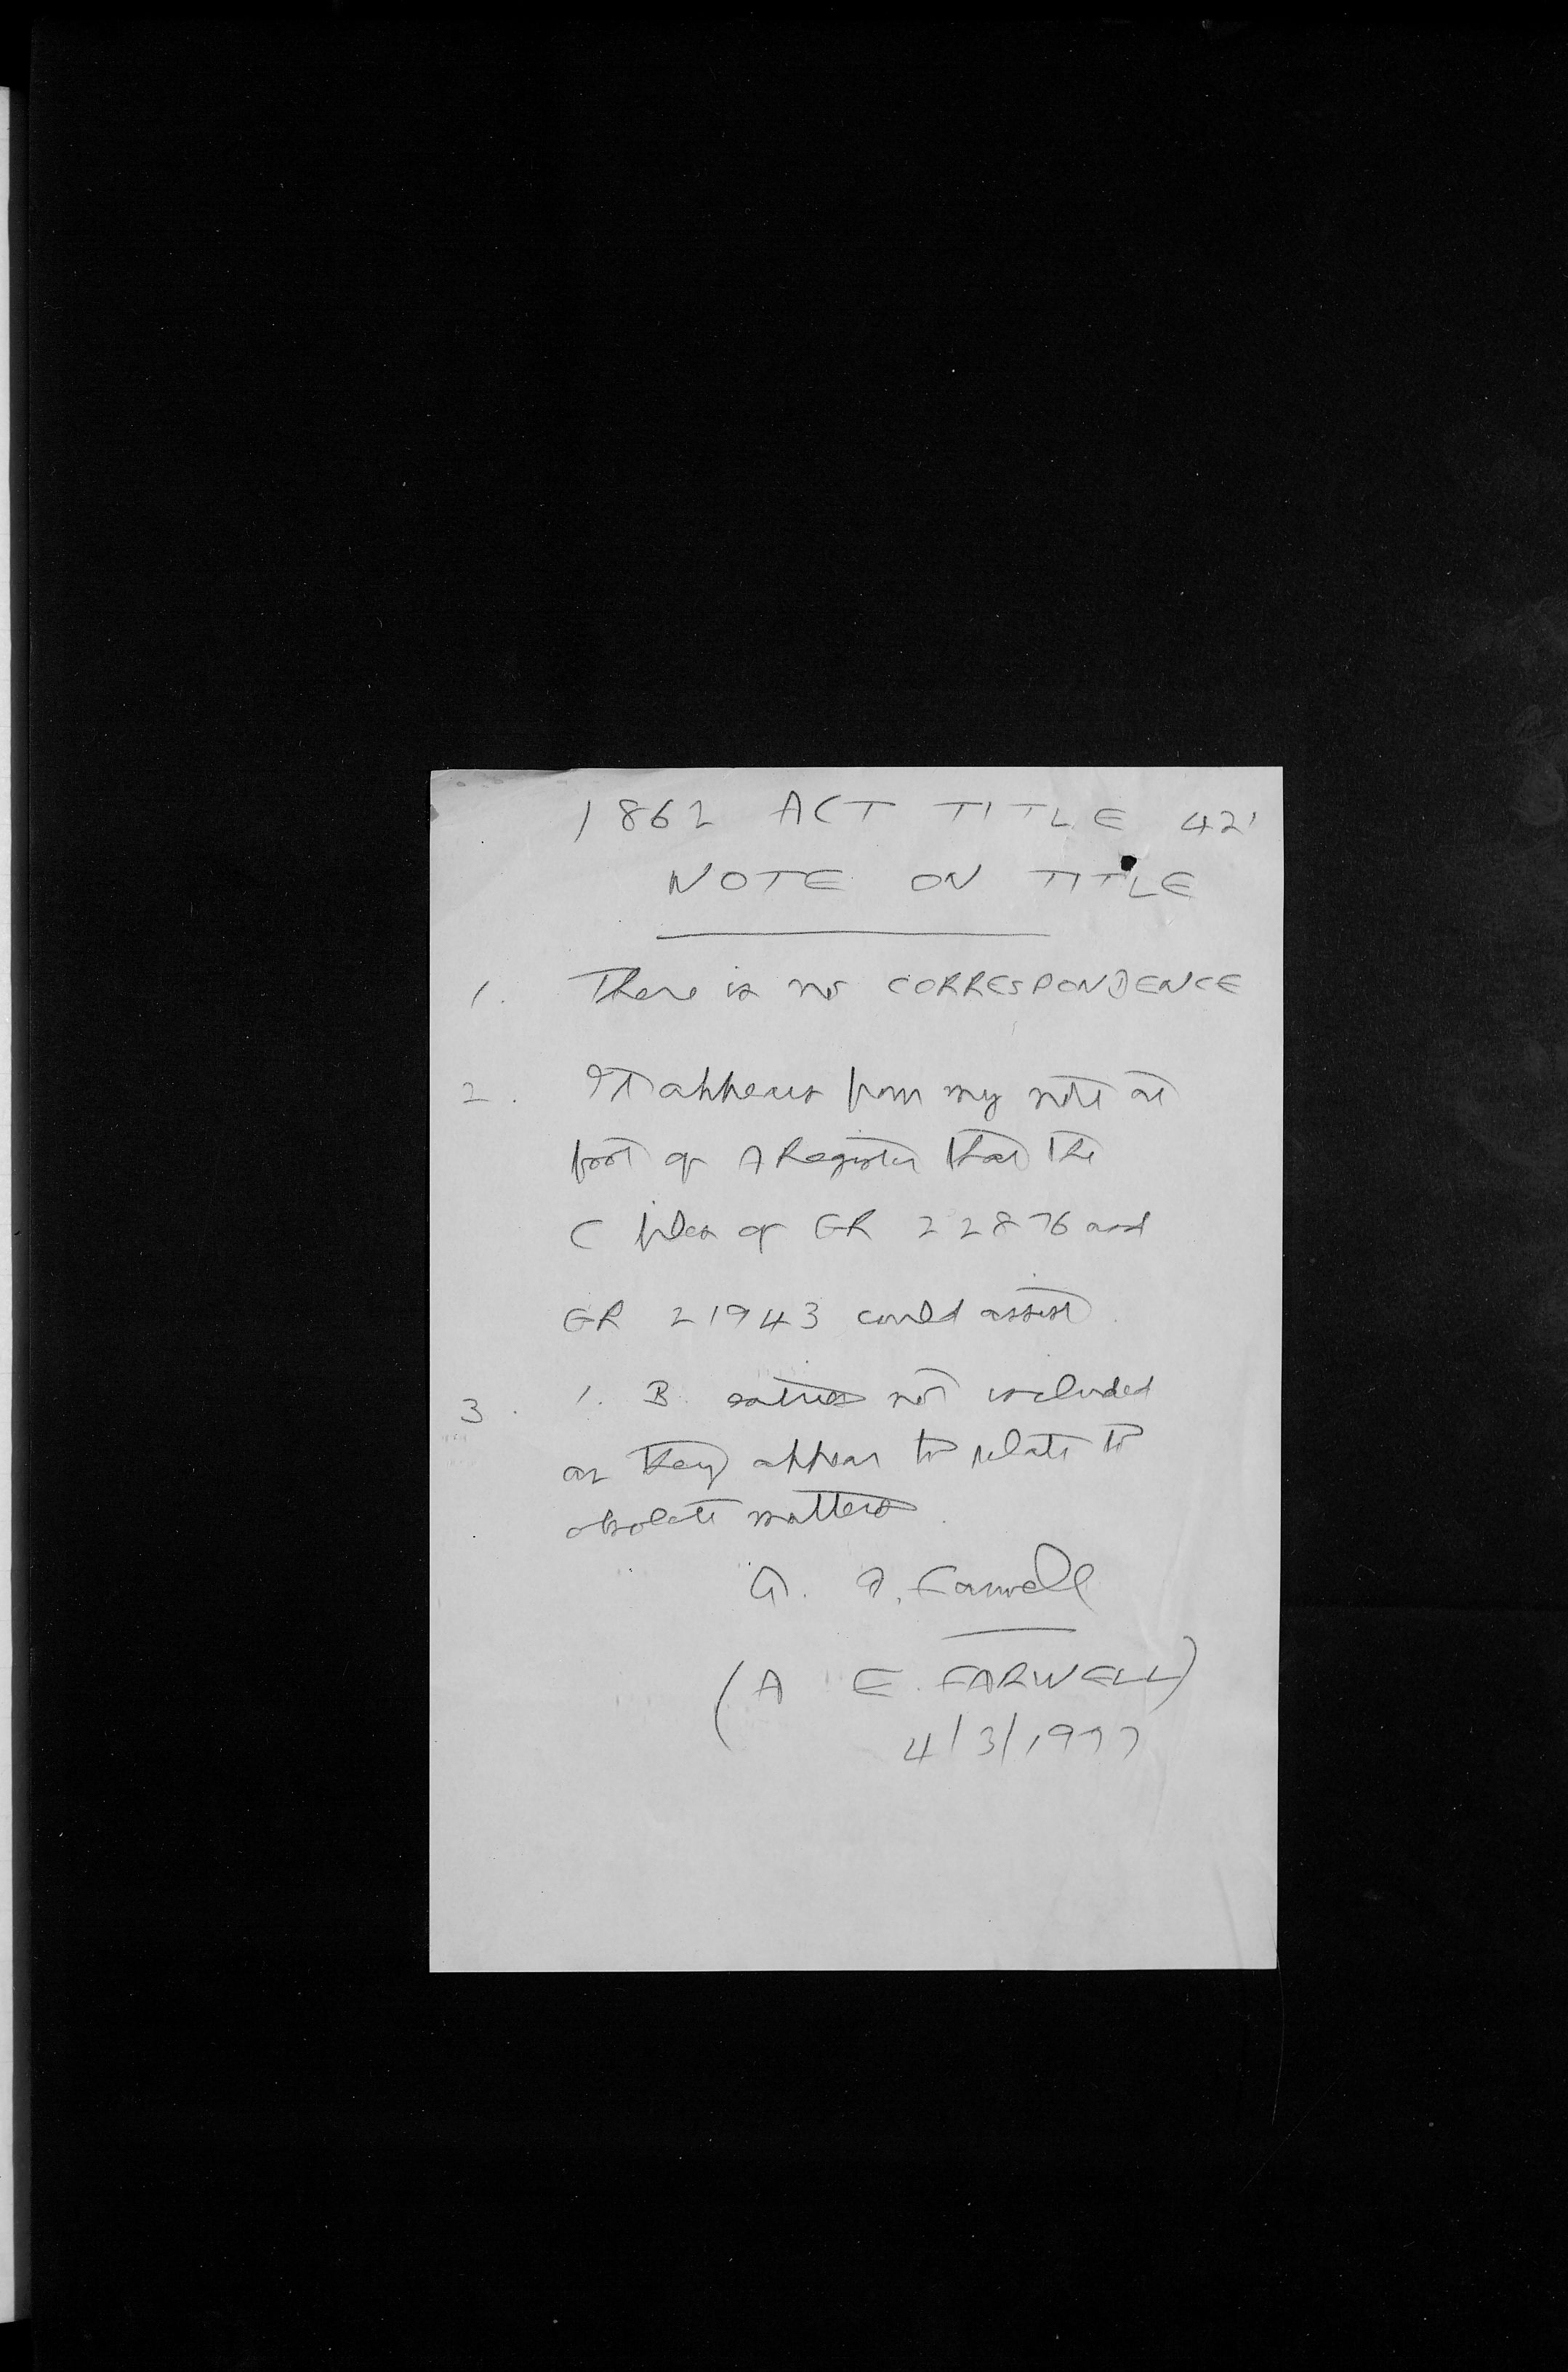 1862 ACT TITLE 421
NOTE ON TITLE
1. There is no CORRESPONDENCE
2. It appears from my note at
foot of A Register that the
C files of GR 22876 and
GR 21943 could assist.
3. 1. B. entries not included
as they appear to relate to
obsolete matters.
A. E. Farwell
(A E. FARWELL)
4/3/1977